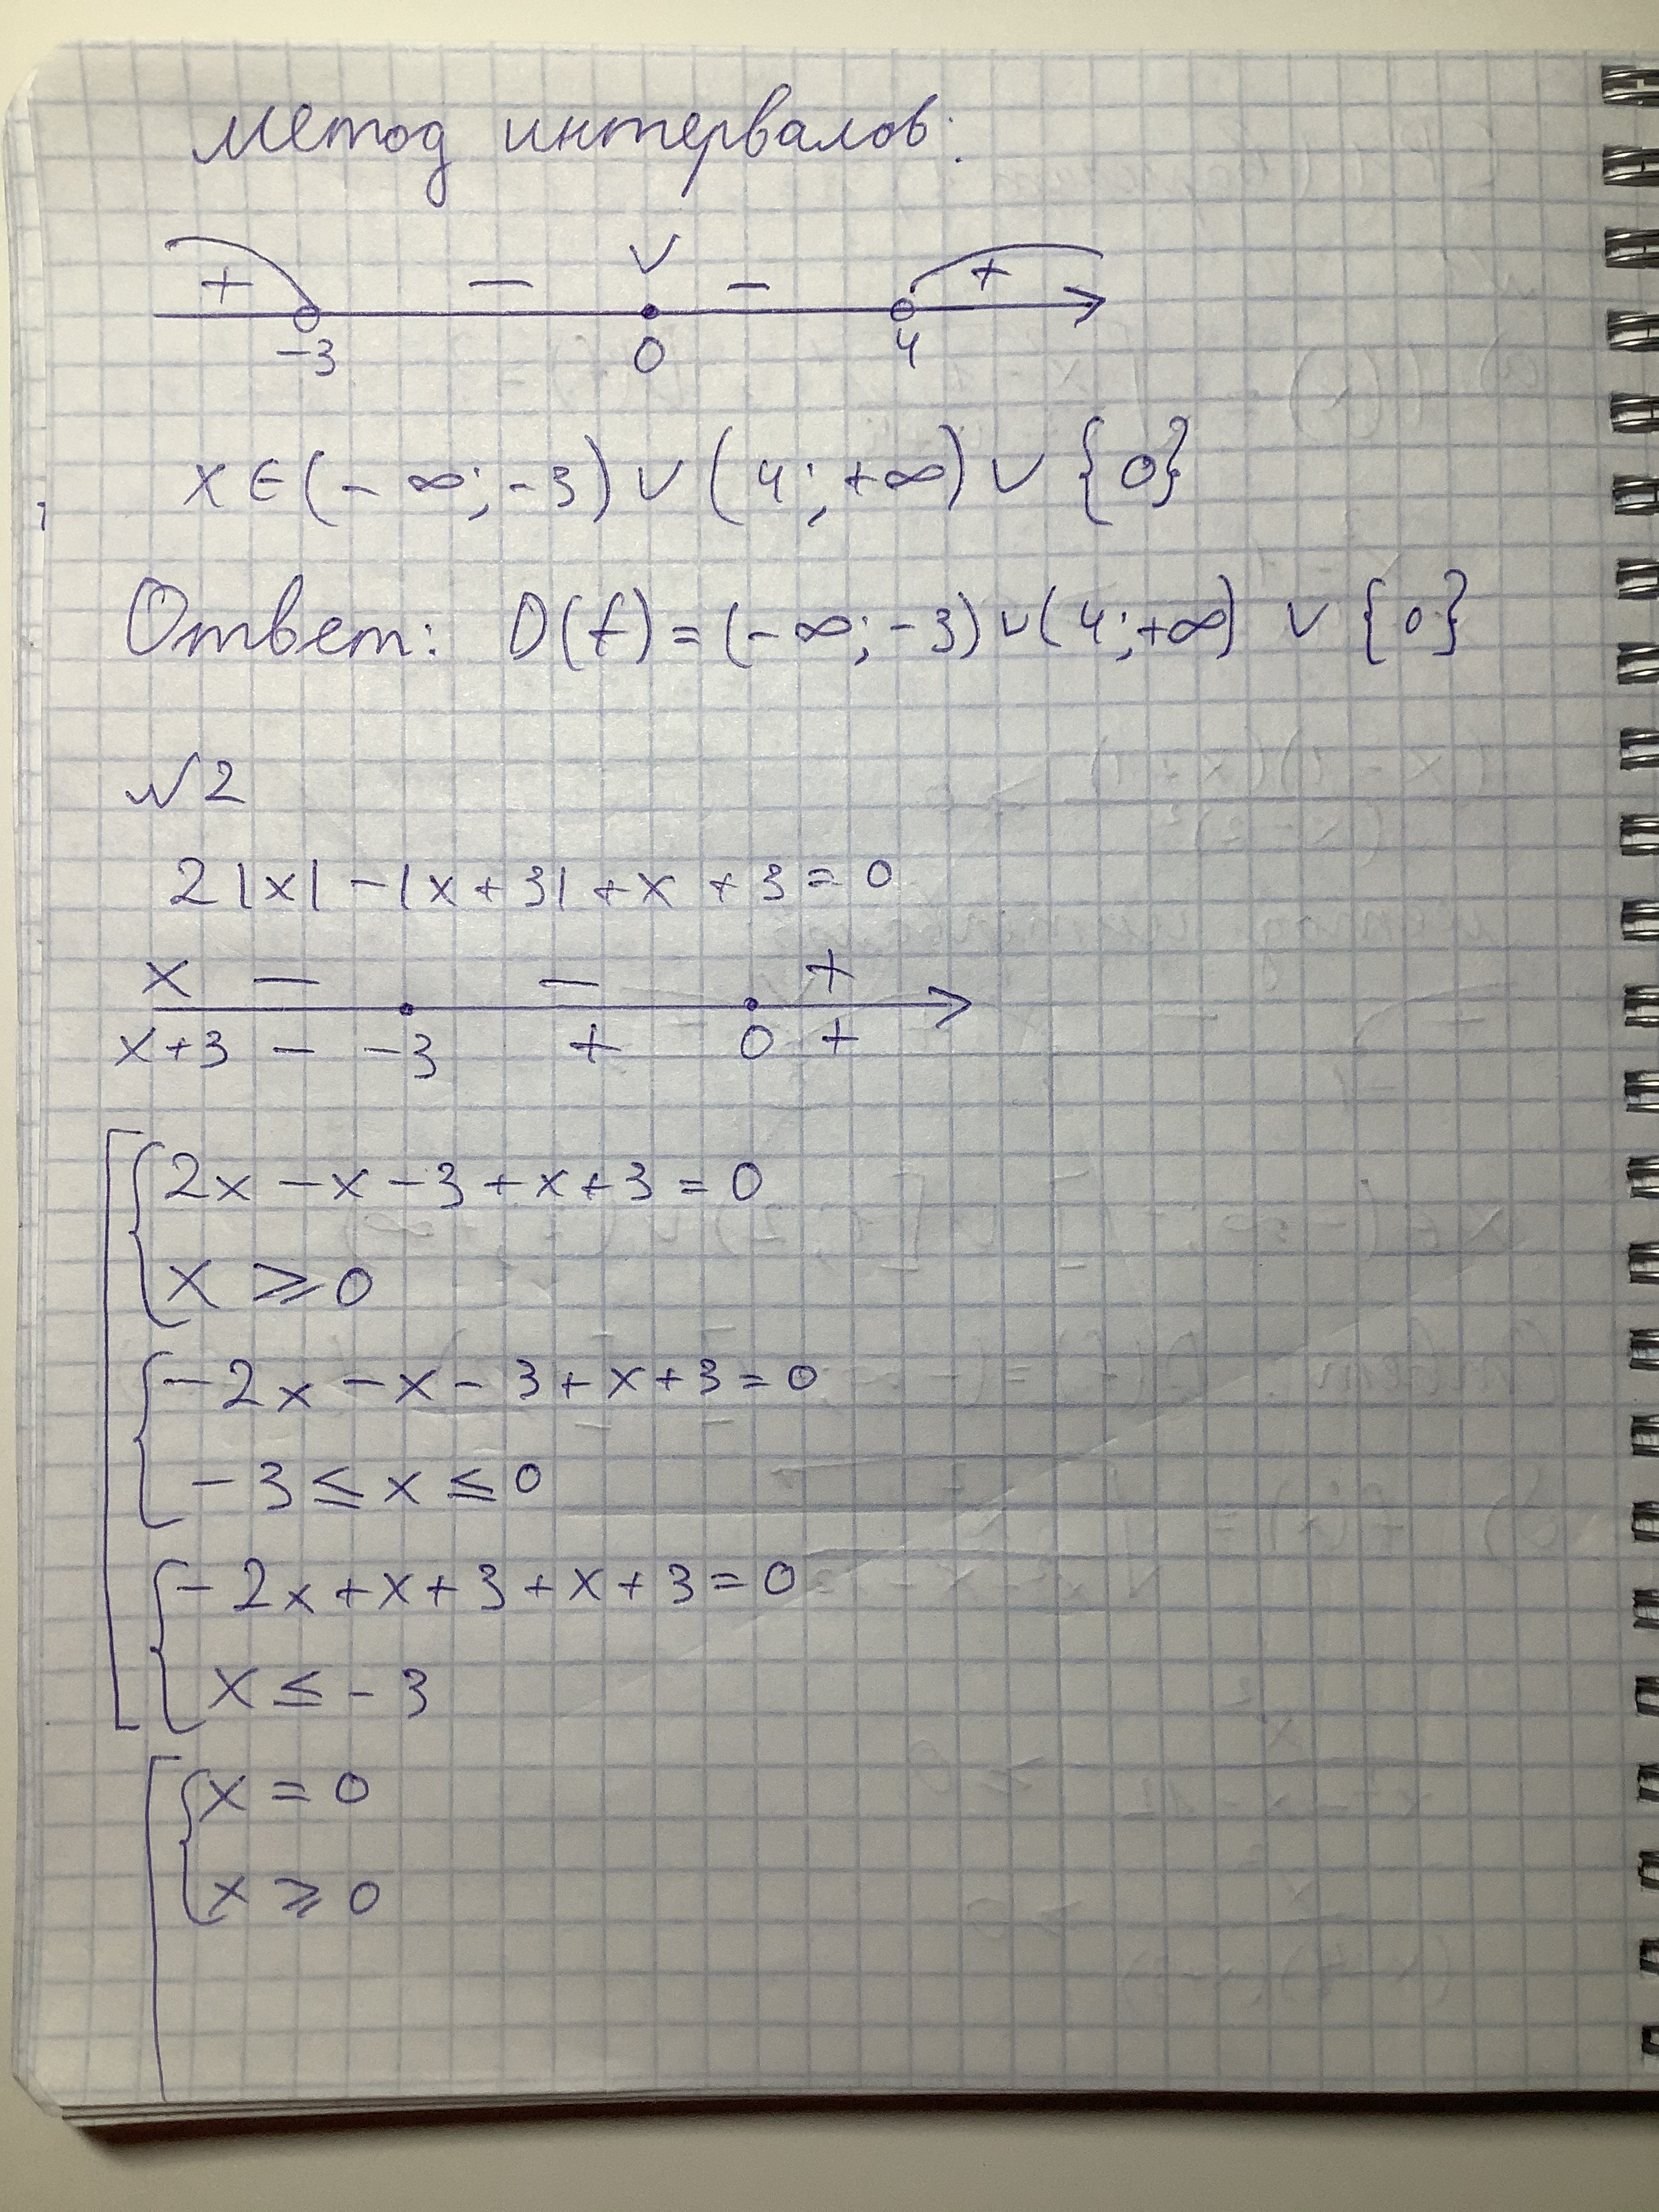 метод интервалов:
+ − ∨ − +
−3 0 4
x ∈ (− ∞; −3) ∪ (4; +∞) ∪ {0}
Ответ: D(f) = (− ∞; −3) ∪ (4; +∞) ∪ {0}
№2
2|x| − |x + 3| + x + 3 = 0
x − − +
x+3 − −3 + 0 +
2x − x − 3 + x + 3 = 0
x ⩾ 0
−2x − x − 3 + x + 3 = 0
−3 ≤ x ≤ 0
−2x + x + 3 + x + 3 = 0
x ≤ −3
x = 0
x ⩾ 0